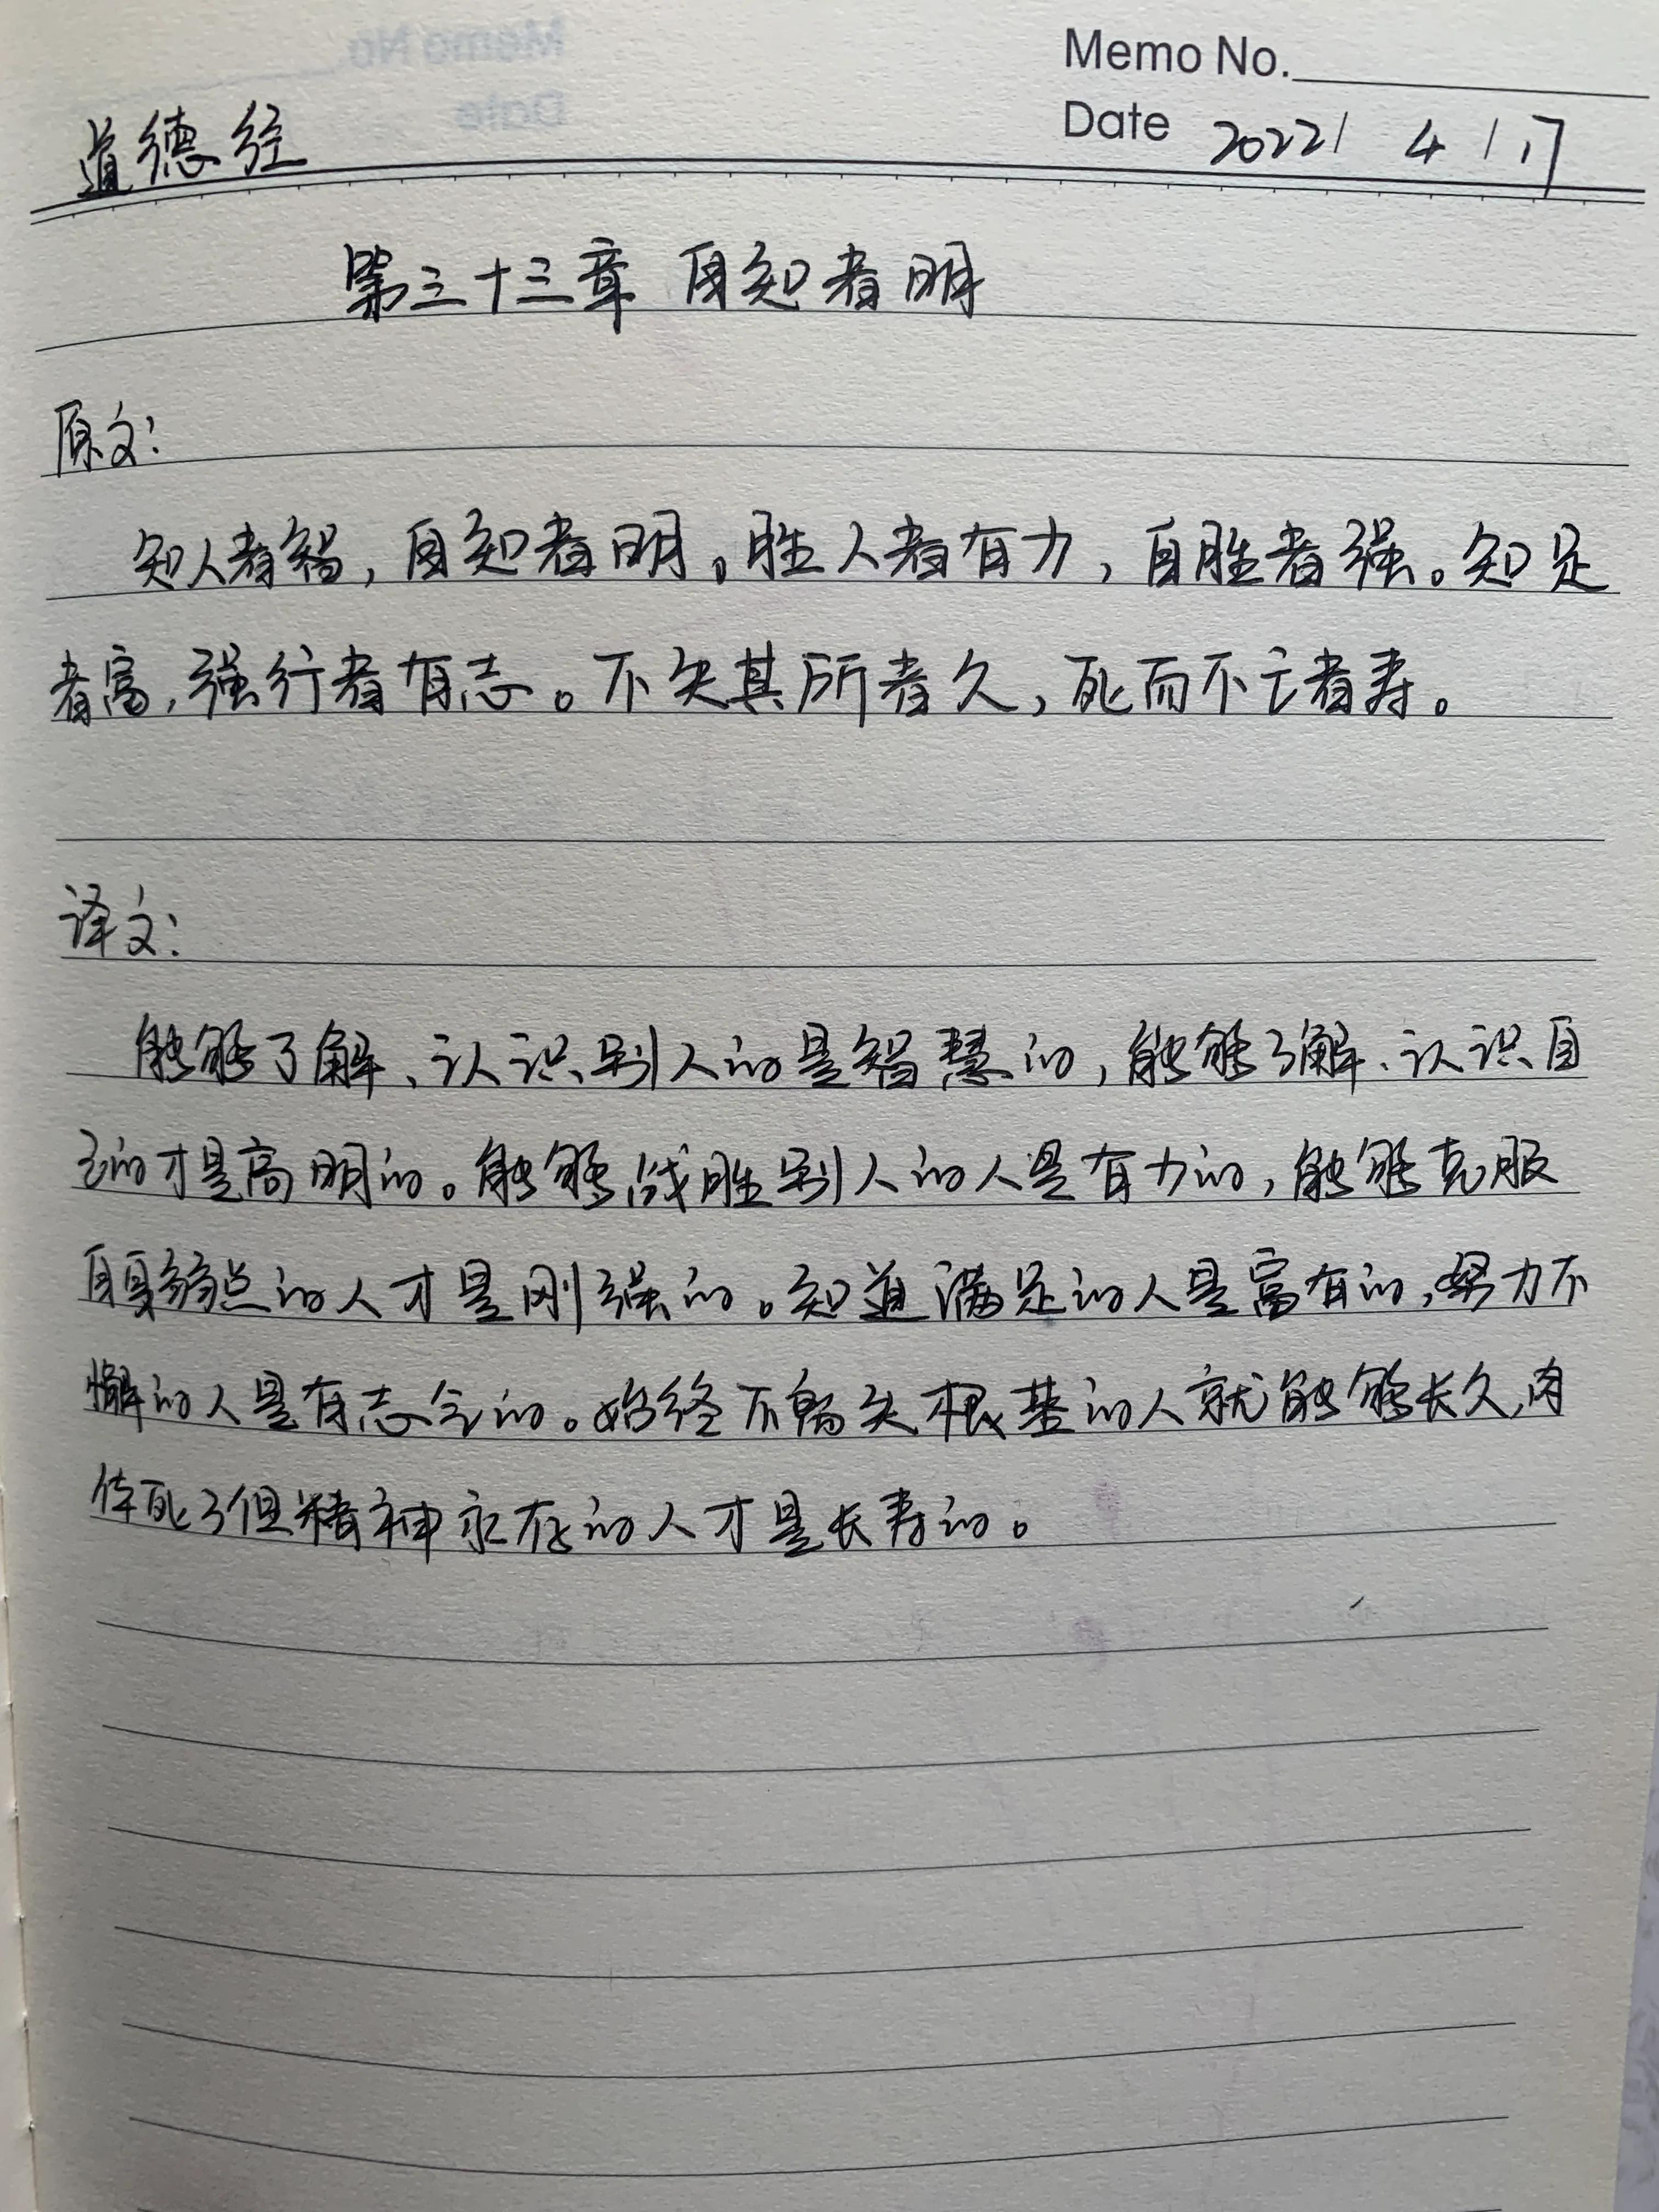 Memo No.
Date 2022/ 4 / 17
道德经
第三十三章 自知者明
原文:
知人者智,自知者明。胜人者有力,自胜者强。知足
者富,强行者有志。不失其所者久,死而不亡者寿。
译文:
能够了解、认识别人的是智慧的,能够了解、认识自
己的才是高明的。能够战胜别人的人是有力的,能够克服
自身弱点的人才是刚强的。知道满足的人是富有的,努力不
懈的人是有志气的。始终不离失根基的人就能够长久,肉
体死了但精神永存的人才是长寿的。